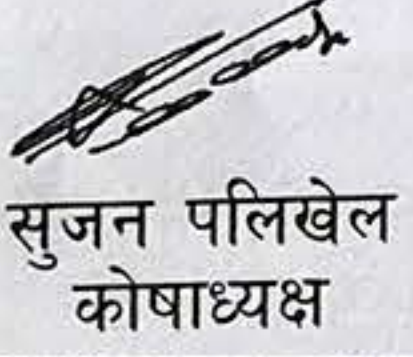 सुजन पलिखेल
कोषाध्यक्ष